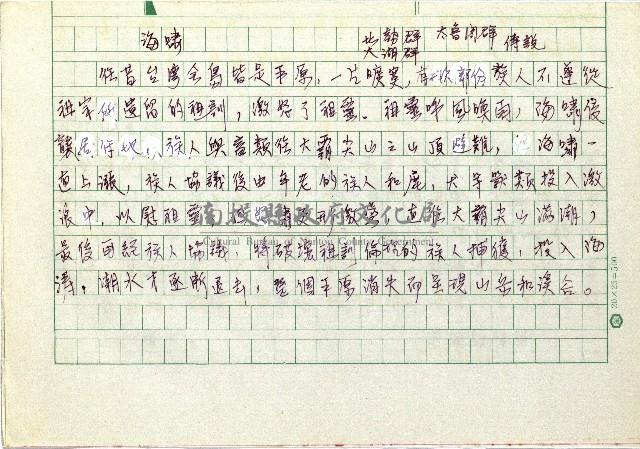 海嘯
北勢群 大湖群 太魯閣群 傳說
往昔台灣全島皆是平原，一片曠寞，有一次部份族人不遵從
祖宗遺留的祖訓，激怒了祖靈。祖靈呼風喚雨，海嘯侵
襲，族人與畜類往大霸尖山之山頂避難，海嘯一
直上漲，族人協議後由年老的族人和鹿，犬等獸類投入激
浪中，以慰祖靈，直往大霸尖山滿潮，
最後再經族人協議，將破壞祖訓倫的族人捕獲，投入海
濤，潮水才逐漸退去，整個平原消失而呈現山岳和溪谷。
南投縣政府文化局
Cultural Bureau of Nantou County Government
20×25=500